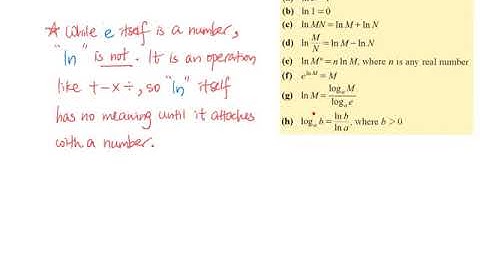 ☆ While e itself is a number,
"ln" is not. It is an operation
like + - × ÷, so "ln" itself
has no meaning until it attaches
with a number.
(b) ln 1 = 0
(c) ln MN = ln M + ln N
(d) ln M/N = ln M − ln N
(e) ln Mⁿ = n ln M, where n is any real number
(f) e^{ln M} = M
(g) ln M = logₐ M / logₐ e
(h) logₐ b = ln b / ln a, where b > 0